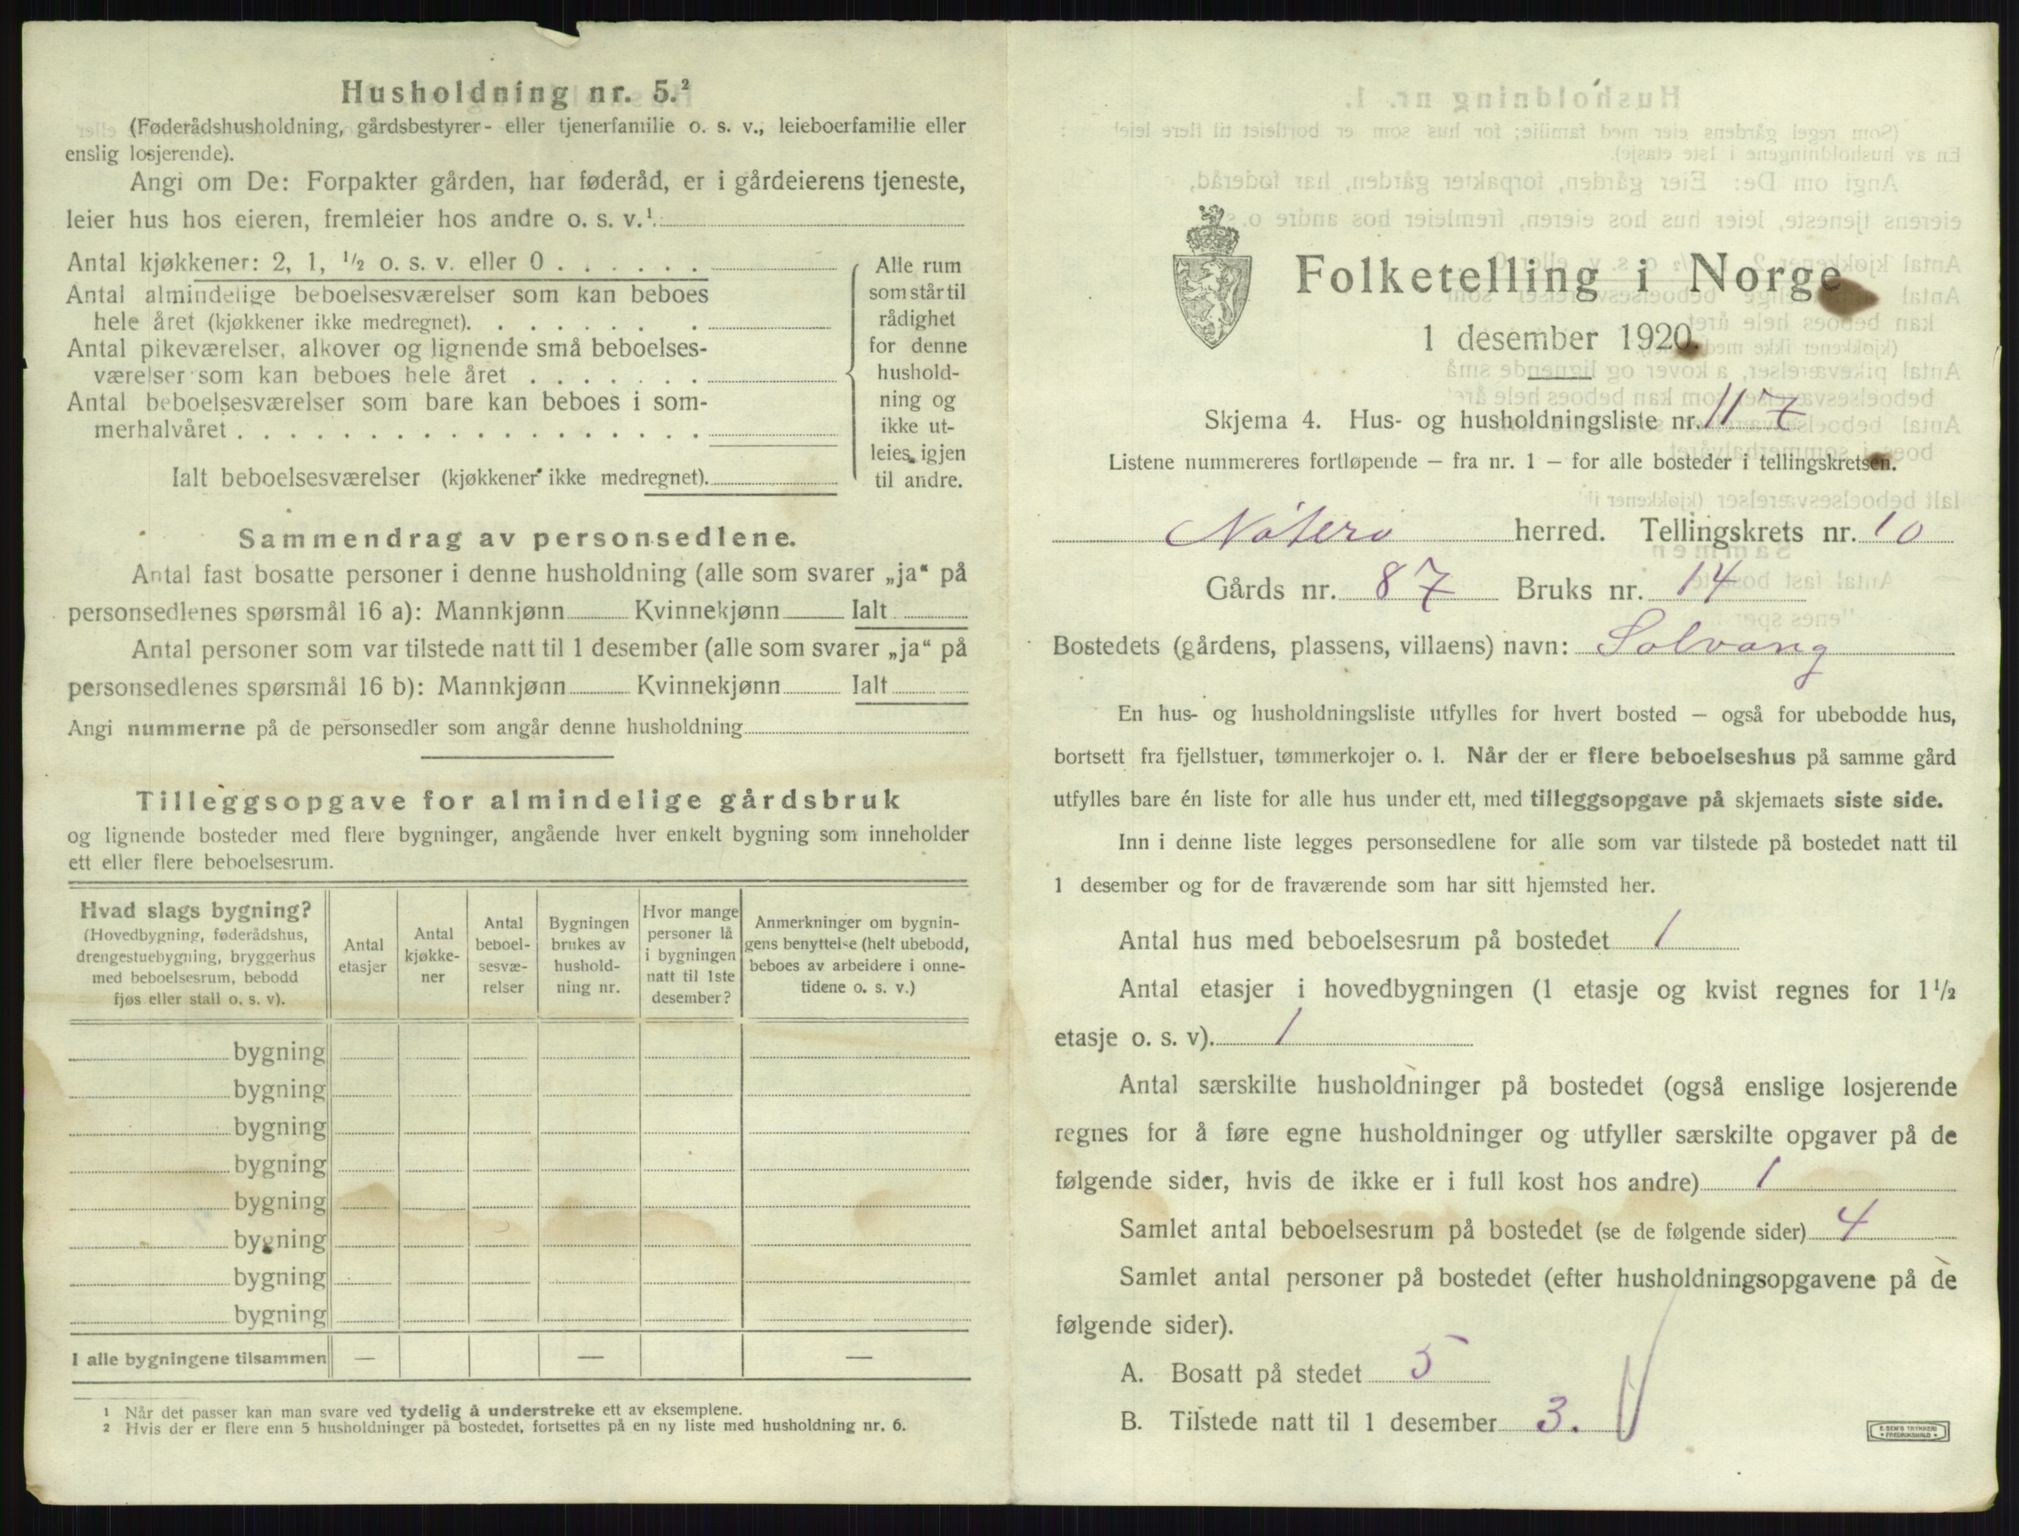 Husholdning nr. 5.²
(Føderådshusholdning, gårdsbestyrer- eller tjenerfamilie o. s. v., leieboerfamilie eller
enslig losjerende).
Angi om De: Forpakter gården, har føderåd, er i gårdeierens tjeneste,
leier hus hos eieren, fremleier hos andre o. s. v.¹:
Antal kjøkkener: 2, 1, ½ o. s. v. eller 0 . . . . . .
Antal almindelige beboelsesværelser som kan beboes
hele året (kjøkkener ikke medregnet). . . . . . . .
Antal pikeværelser, alkover og lignende små beboelses-
værelser som kan beboes hele året . . . . . . .
Antal beboelsesværelser som bare kan beboes i som-
merhalvåret . . . . . . . . . . . . . . . . . .
Ialt beboelsesværelser (kjøkkener ikke medregnet).
Alle rum
som står til
rådighet
for denne
hushold-
ning og
ikke ut-
leies igjen
til andre.
Sammendrag av personsedlene.
Antal fast bosatte personer i denne husholdning (alle som svarer „ja“ på
personsedlenes spørsmål 16 a): Mannkjønn Kvinnekjønn Ialt
Antal personer som var tilstede natt til 1 desember (alle som svarer „ja“ på
personsedlenes spørsmål 16 b): Mannkjønn Kvinnekjønn Ialt
Angi nummerne på de personsedler som angår denne husholdning
Tilleggsopgave for almindelige gårdsbruk
og lignende bosteder med flere bygninger, angående hver enkelt bygning som inneholder
ett eller flere beboelsesrum.
Hvad slags bygning?
(Hovedbygning, føderådshus,
drengestuebygning, bryggerhus
med beboelsesrum, bebodd
fjøs eller stall o. s. v).
Antal
etasjer
Antal
kjøkke-
ner
Antal
beboel-
sesvæ-
relser
Bygningen
brukes av
hushold-
ning nr.
Hvor mange
personer lå
i bygningen
natt til 1ste
desember?
Anmerkninger om bygnin-
gens benyttelse (helt ubebodd,
beboes av arbeidere i onne-
tidene o. s. v.)
bygning
bygning
bygning
bygning
bygning
bygning
bygning
bygning
I alle bygningene tilsammen — — —
¹ Når det passer kan man svare ved tydelig å understreke ett av eksemplene.
² Hvis der er flere enn 5 husholdninger på bostedet, fortsettes på en ny liste med husholdning nr. 6.
Folketelling i Norge
1 desember 1920.
Skjema 4. Hus- og husholdningsliste nr. 117
Listene nummereres fortløpende — fra nr. 1 — for alle bosteder i tellingskretsen.
Nøterø herred. Tellingskrets nr. 10
Gårds nr. 87 Bruks nr. 14
Bostedets (gårdens, plassens, villaens) navn: Solvang
En hus- og husholdningsliste utfylles for hvert bosted — også for ubebodde hus,
bortsett fra fjellstuer, tømmerkojer o. l. Når der er flere beboelseshus på samme gård
utfylles bare én liste for alle hus under ett, med tilleggsopgave på skjemaets siste side.
Inn i denne liste legges personsedlene for alle som var tilstede på bostedet natt til
1 desember og for de fraværende som har sitt hjemsted her.
Antal hus med beboelsesrum på bostedet 1
Antal etasjer i hovedbygningen (1 etasje og kvist regnes for 1½
etasje o. s. v). 1
Antal særskilte husholdninger på bostedet (også enslige losjerende
regnes for å føre egne husholdninger og utfyller særskilte opgaver på de
følgende sider, hvis de ikke er i full kost hos andre) 1
Samlet antal beboelsesrum på bostedet (se de følgende sider) 4
Samlet antal personer på bostedet (efter husholdningsopgavene på de
følgende sider).
A. Bosatt på stedet 5
B. Tilstede natt til 1 desember 3.